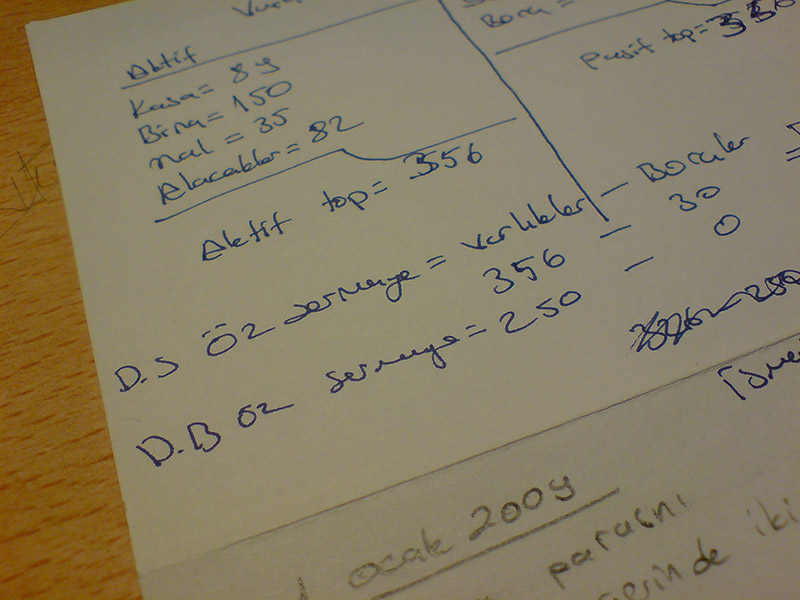 Aktif
Kasa = 89
Bina = 150
mal = 35
Alacaklar = 82
Aktif top = 356
Borç =
Pasif top = 356
D.S Öz sermaye = varlıklar - Borçlar
356 - 30
D.B öz sermaye = 250 - 0
1 ocak 2009
parasını
iki